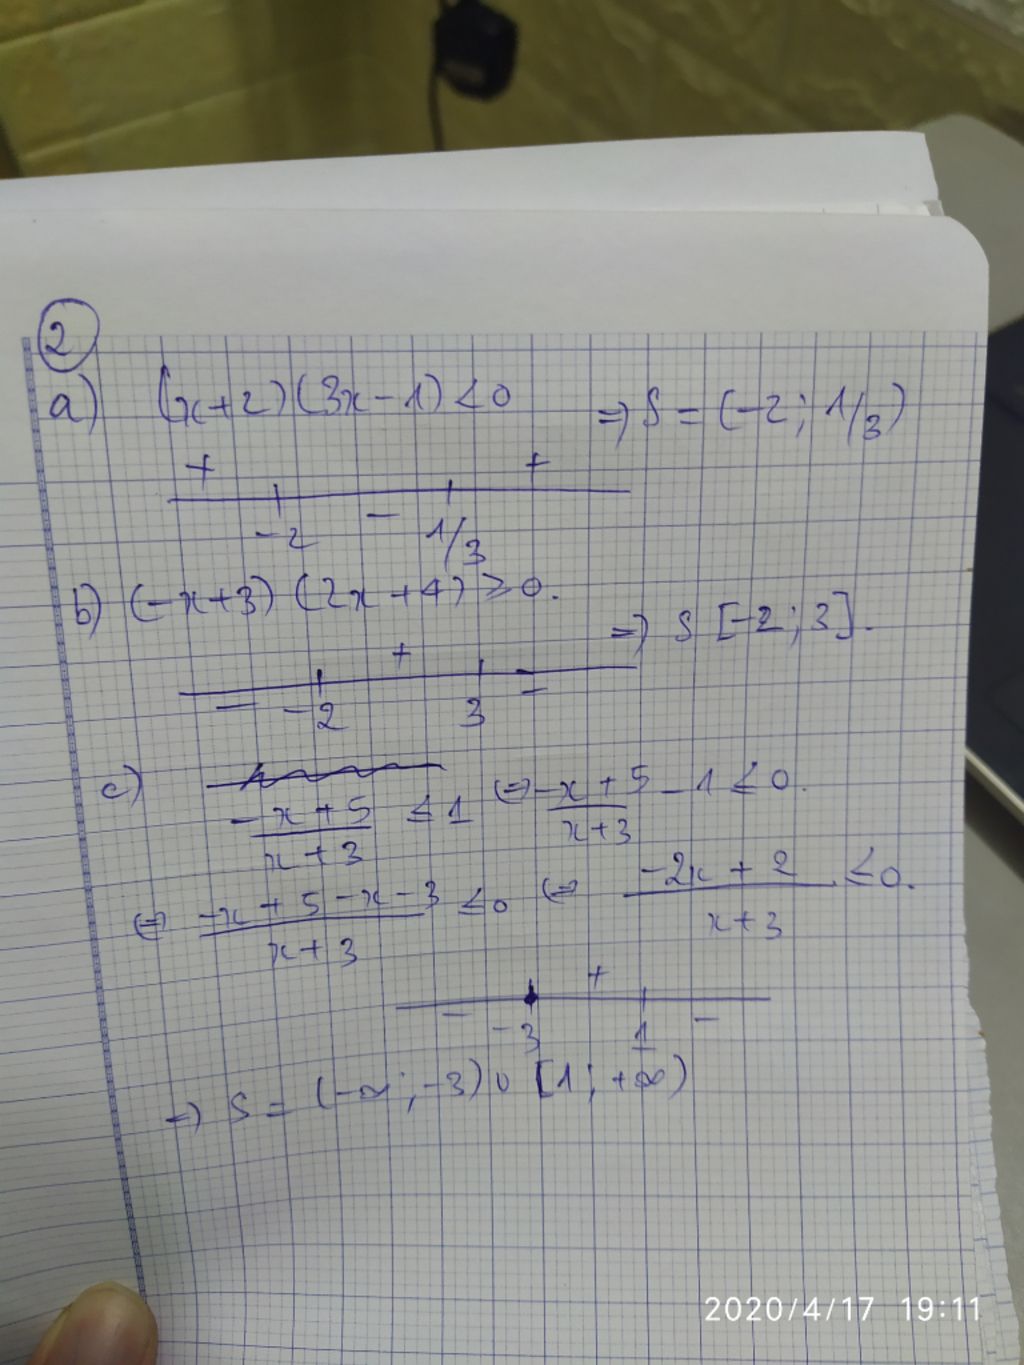 2
a) (x+2)(3x-1) < 0 => S = (-2; 1/3)
+ +
-2 - 1/3
b) (-x+3) (2x+4) ≥ 0. => S [-2; 3].
+
- -2 3 -
c) (-x+5)/(x+3) ≤ 1 (=) (-x+5)/(x+3) - 1 ≤ 0.
(=) (-x+5-x-3)/(x+3) ≤ 0 (=) (-2x+2)/(x+3) ≤ 0.
+
- -3 1 -
=> S = (-∞; -3) ∪ [1; +∞)
2020/4/17 19:11